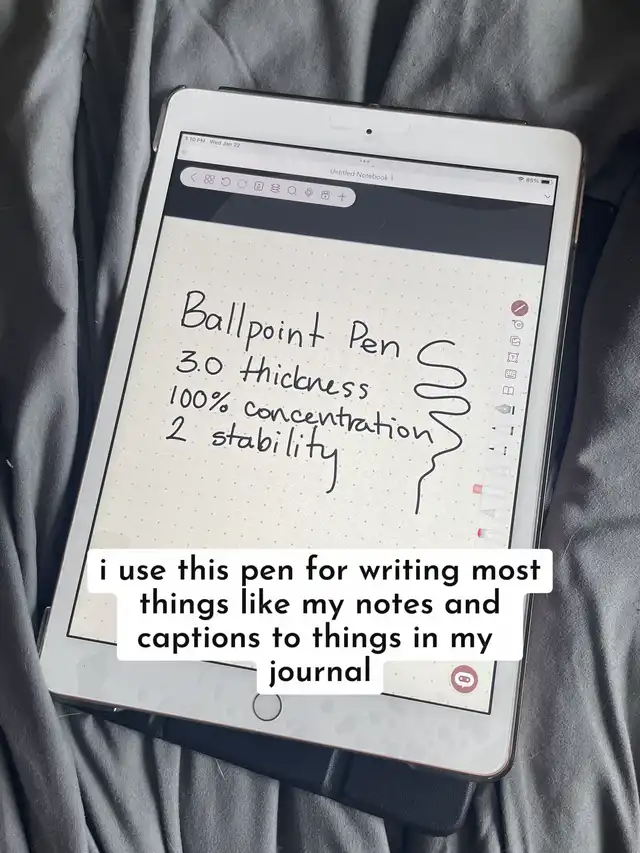 1:10 PM Wed Jan 22
85%
Untitled Notebook
Ballpoint Pen
3.0 thickness
100% concentration
2 stability
i use this pen for writing most
things like my notes and
captions to things in my
journal